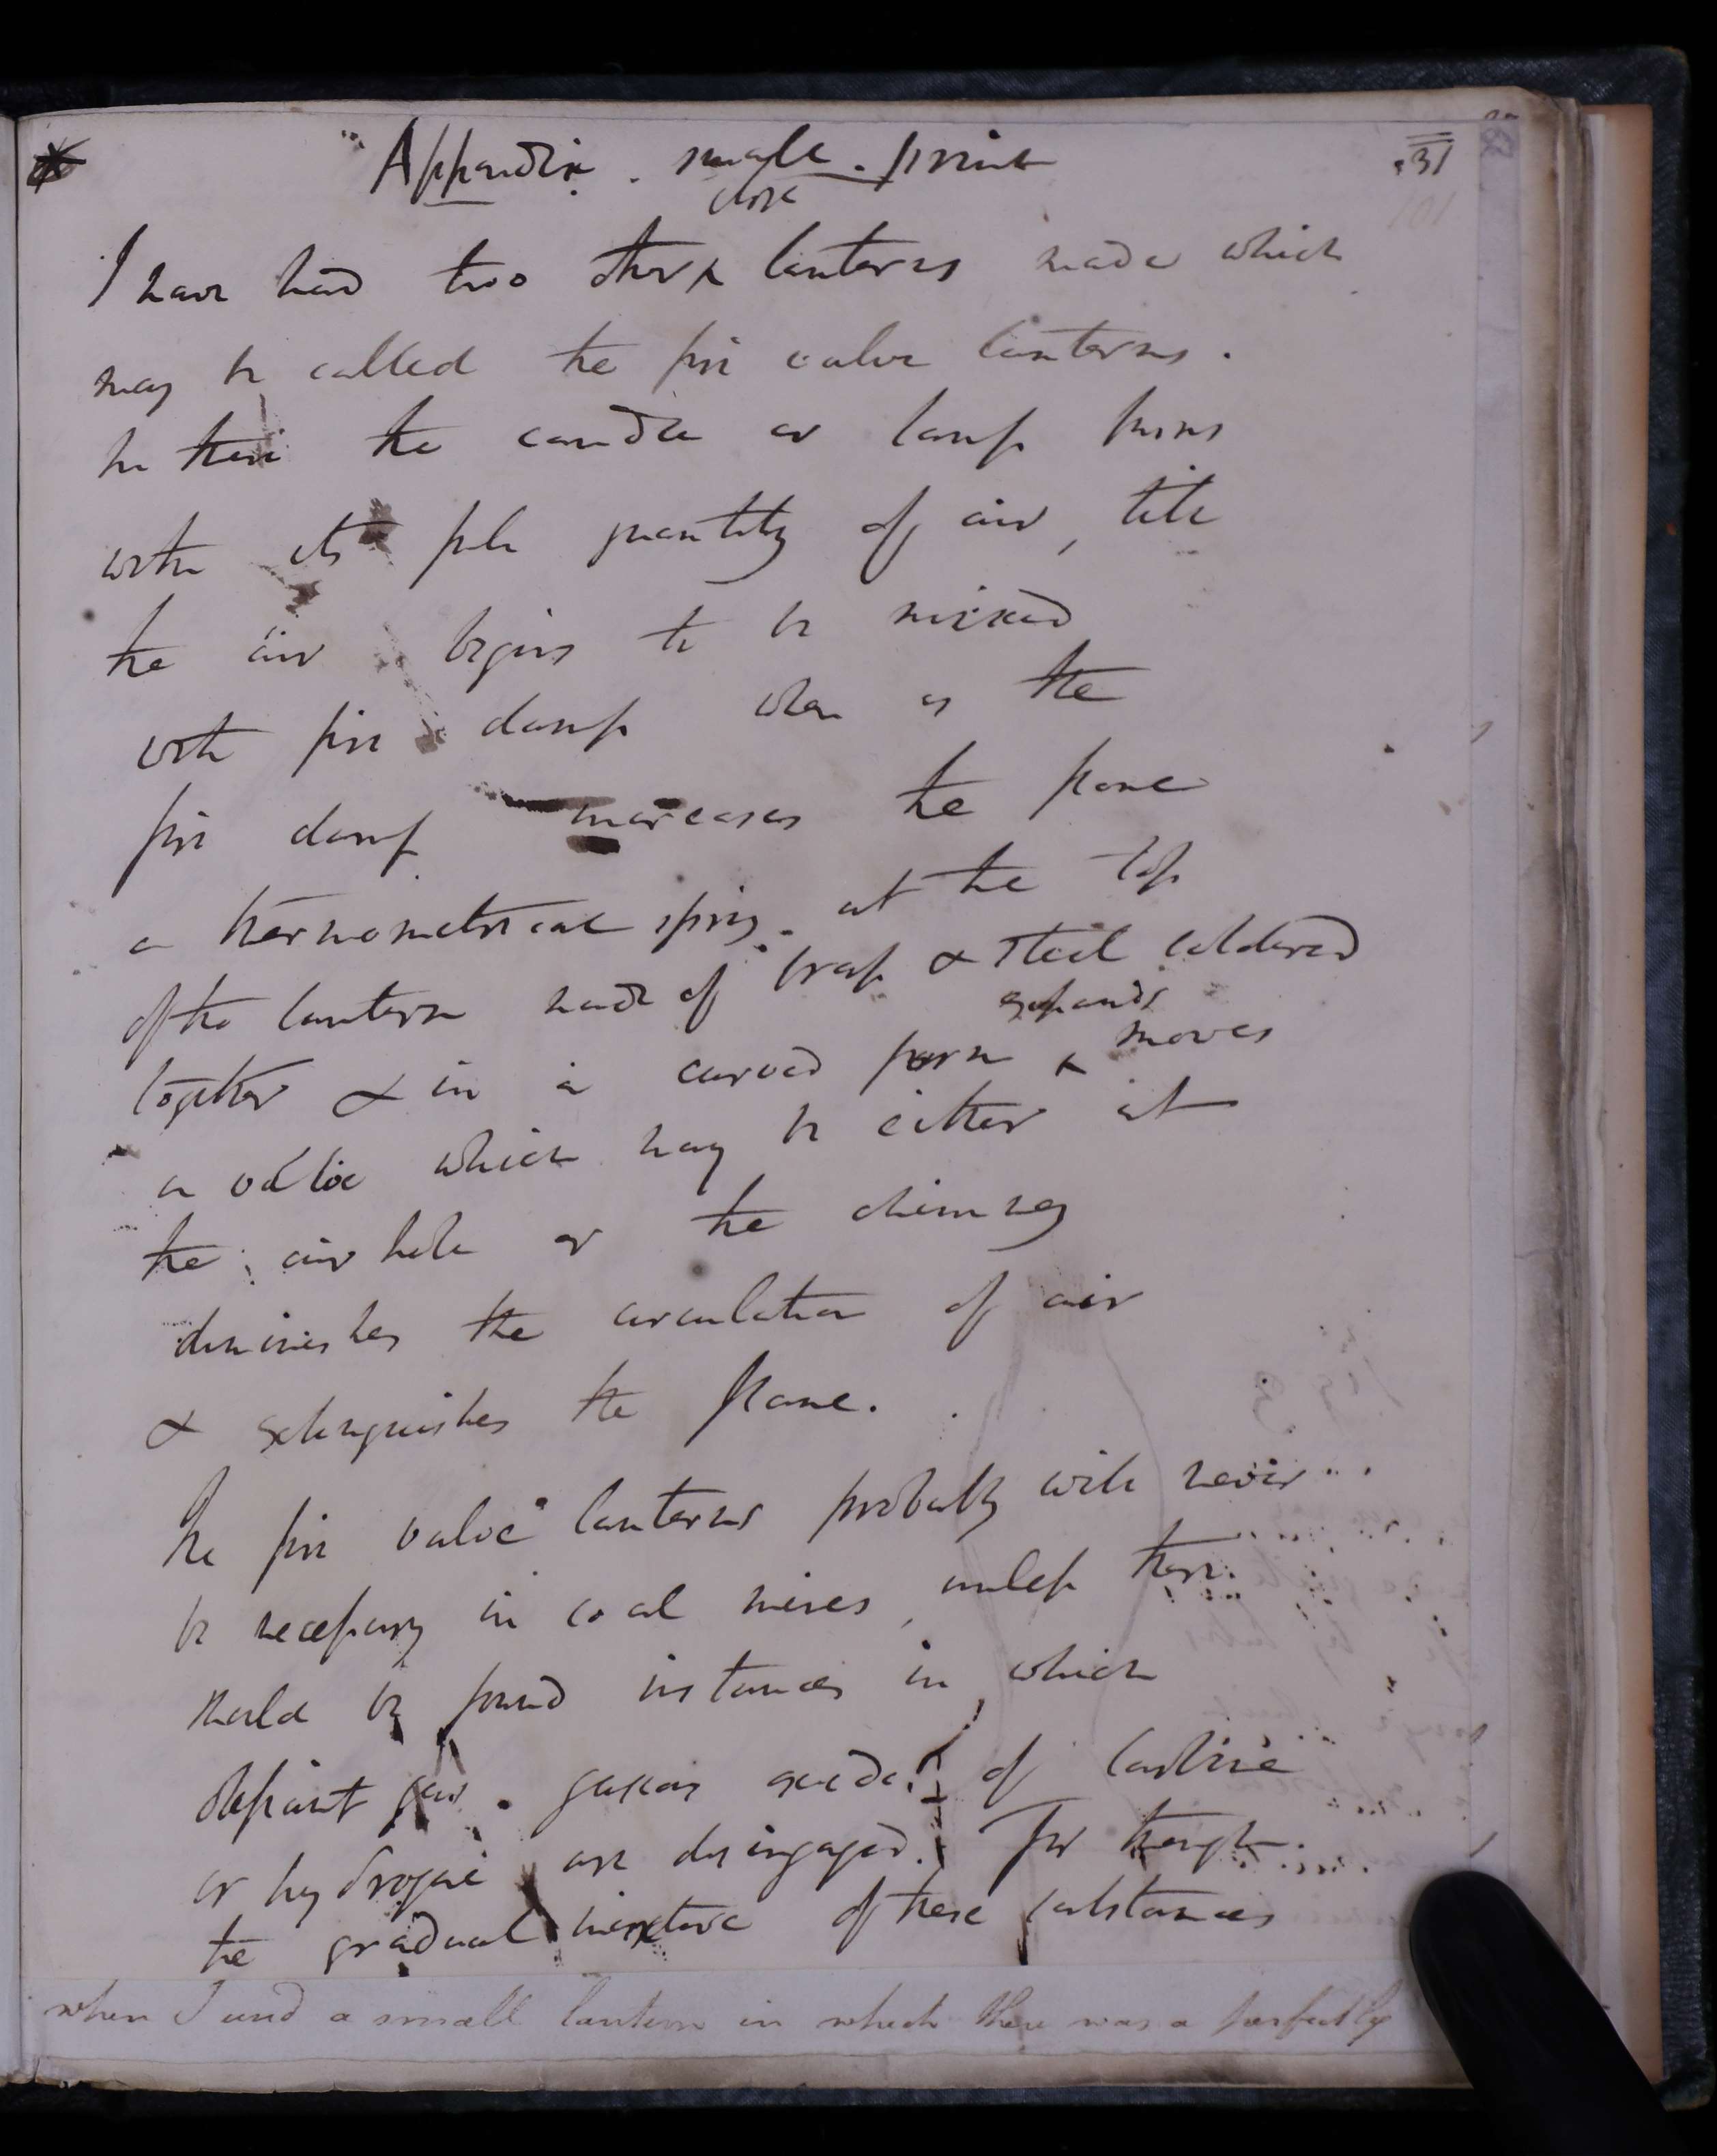 Appendix. small. print
31
close
I have had two other lanterns made which
may be called the fire valve lanterns.
In these the candle or lamp burns
with its full quantity of air, till
the air begins to be mixed
with fire damp when as the
fire damp increases the flame
a thermometrical spring at the top
of the lantern made of brass & steel soldered
expands
together & in a curved form & moves
a valve which may be either at
the air hole or the chimney
diminishes the circulation of air
& extinguishes the flame.
The fire valve lanterns probably will never
be necessary in coal mines, unless there
should be found instances in which
olefiant gas. gaseous oxide of carbone
or hydrogene are disengaged. For though
the gradual mixture of these substances
when I used a small lantern in which there was a perfectly